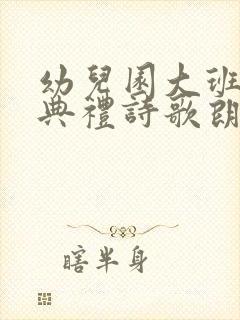 幼兒園大班
典禮詩歌朗
瞎半身